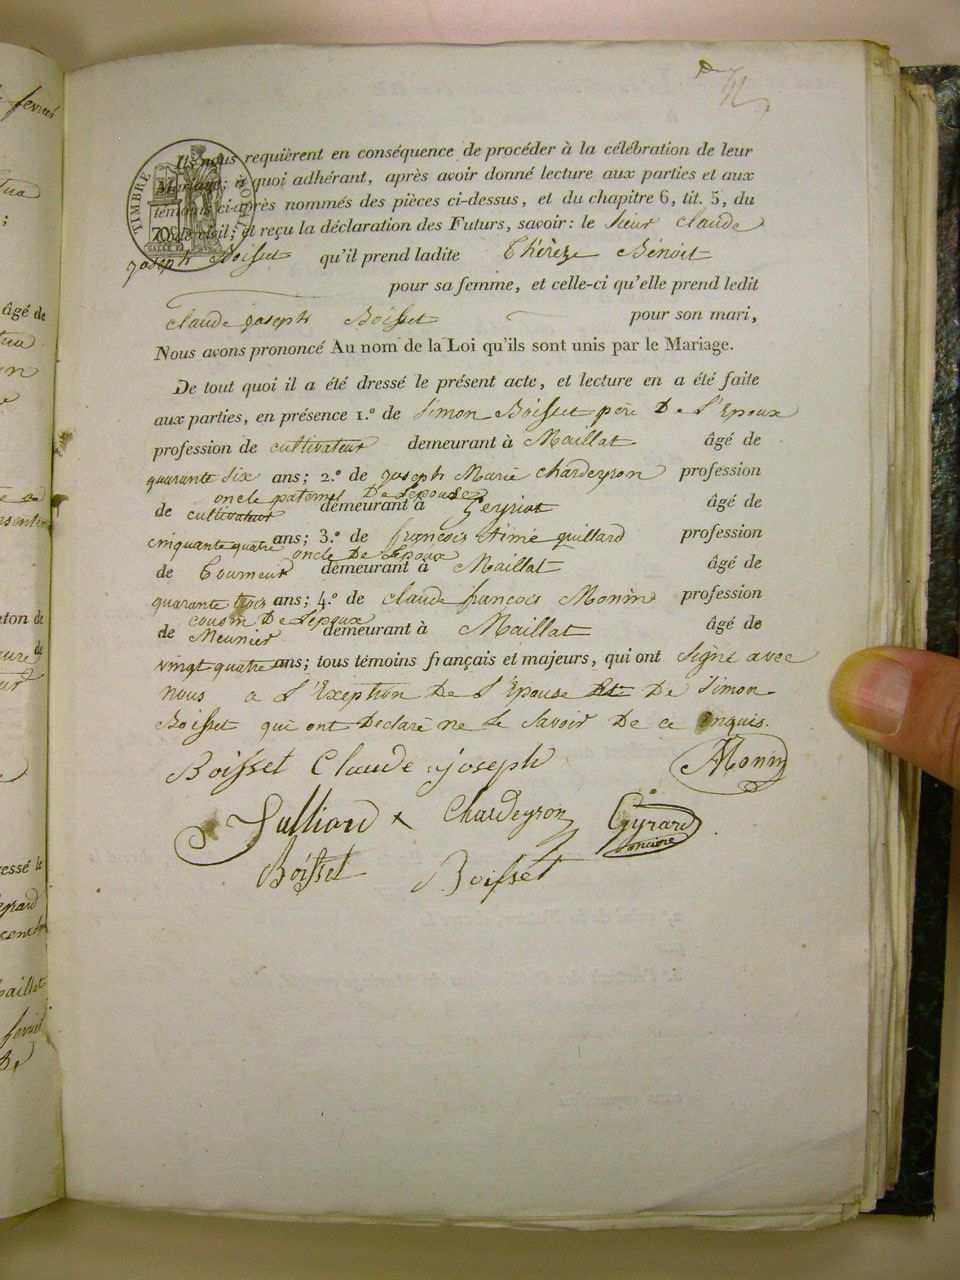 Ils nous requièrent en conséquence de procéder à la célébration de leur
Mariage; à quoi adhérant, après avoir donné lecture aux parties et aux
témoins ci-après nommés des pièces ci-dessus, et du chapitre 6, tit. 5, du
civil; et reçu la déclaration des Futurs, savoir: le Sieur Claude
TIMBRE ROYAL
70
Joseph Boisset qu'il prend ladite Thérèze Bénoit
pour sa femme, et celle-ci qu'elle prend ledit
Claude Joseph Boisset pour son mari,
Nous avons prononcé Au nom de la Loi qu'ils sont unis par le Mariage.
De tout quoi il a été dressé le présent acte, et lecture en a été faite
aux parties, en présence 1.º de Simon Boisset pere De l'Epoux
profession de cultivateur demeurant à Maillat âgé de
quarante six ans; 2.º de Joseph Marie Chardeyron profession
oncle paternel De l'epouse
de cultivateur demeurant à Peyriat âgé de
cinquante quatre ans; 3.º de françois Aimé guillard profession
oncle De l'Epoux
de Tourneur demeurant à Maillat âgé de
quarante trois ans; 4.º de Claude françois Monin profession
cousin De l'epoux
de Meunier demeurant à Maillat âgé de
vingt quatre ans; tous témoins français et majeurs, qui ont signé avec
nous a l'Exeption De l'Epouse Et De Simon
Boisset qui ont Declaré ne le Savoir De ce Enquis.
Boisset Claude joseph Monin
Julliard Chardeyron Gyrard
Boisset Boisset